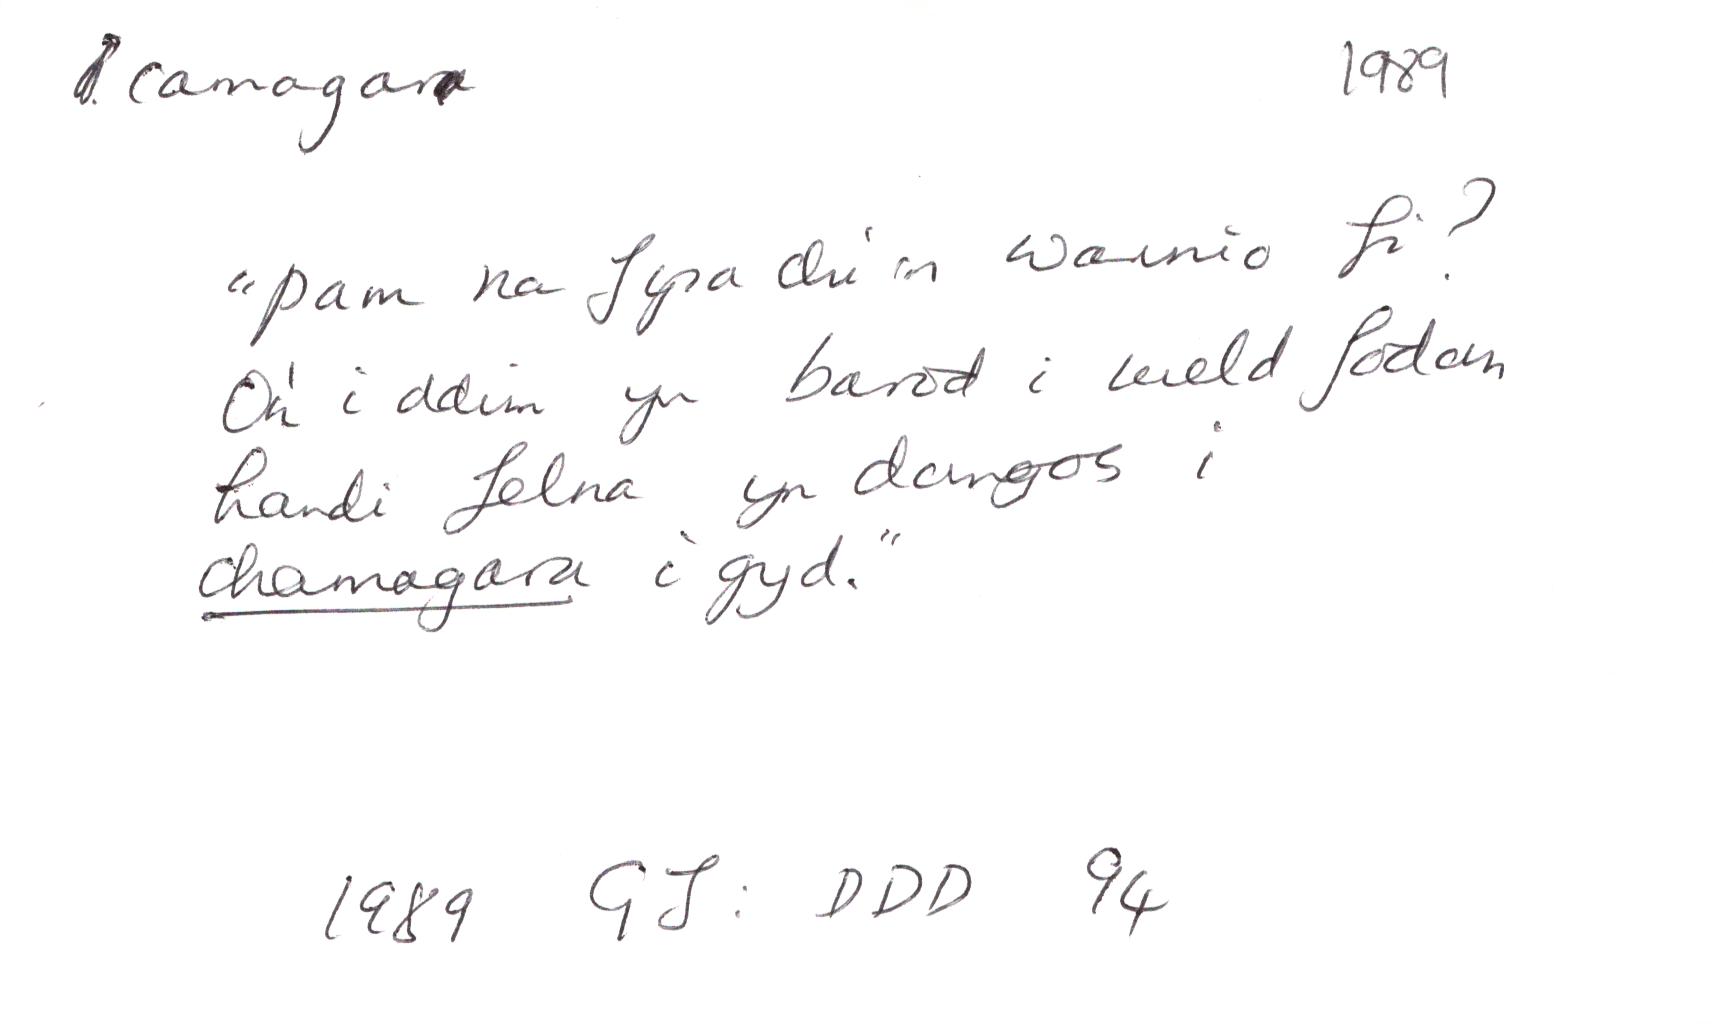 camagara 1989
"Pam na fysa chi'n warnio fi?
O'n i ddim yn barod i weld fodan
handi felna yn dangos i
chamagara i gyd."
1989 GJ: DDD 94